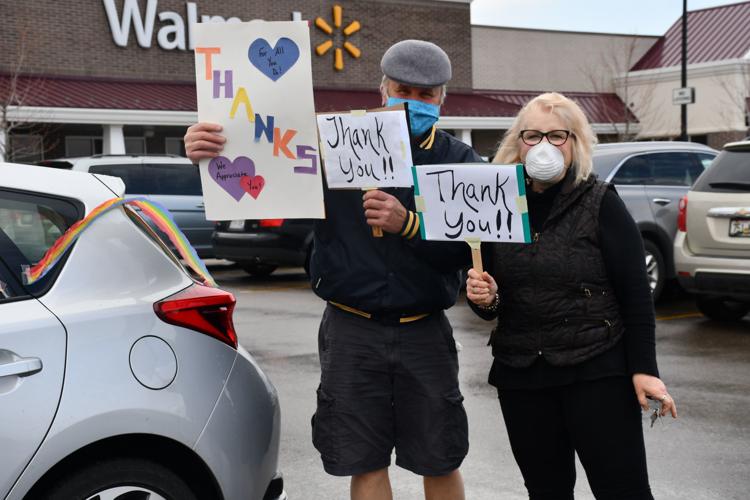 Walmart
THANKS
For All
You
Do!
We
Appreciate
You!
Thank
You!!
Thank
You!!